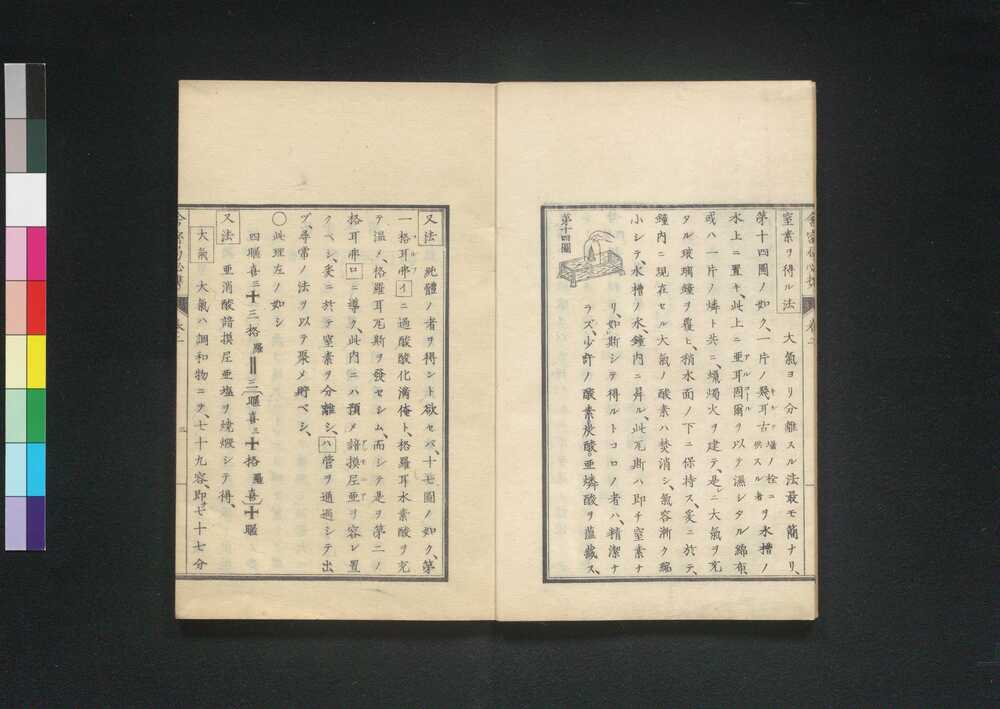 窒素ヲ得ル法 大氣ヨリ分離スル法最モ簡ナリ、
第十四圖ノ如ク、一片ノ幾耳古 キルク 壜ノ栓ニ供スル者 ヲ水槽ノ
水上ニ置キ、此上ニ亜耳箇爾 アルコール ヲ以テ濕シタル綿布、
或ハ一片ノ燐ト共ニ、蠟燭火ヲ建テ、是レニ大氣ヲ充
タル玻璃鐘ヲ覆ヒ、稍水面ノ下ニ保持ス、爰ニ於テ、
鐘内ニ現在セル大氣ノ酸素ハ焚消シ、氣容漸ク縮
小シテ、水槽ノ水、鐘内ニ昇ル、此瓦斯ハ即チ窒素ナ
リ、如斯シテ得ルトコロノ者ハ、精潔ナ
ラズ、少許ノ酸素炭酸亜燐酸ヲ蘊蔵ス、
第十四圖
又法 純體ノ者ヲ得ント欲セバ、十七圖ノ如ク、第
一格耳弗 コルフ イニ過酸酸化満俺ト、格羅耳水素酸ヲ充
テ温メ、格羅耳瓦斯ヲ發セシム、而シテ是ヲ第二ノ
格耳弗ロニ導ク、此内ニハ預メ諳摸尼亜 アモニア ヲ容レ置
クベシ、爰ニ於テ窒素ヲ分離シ、ハ管ヲ通過シテ出
ヅ、尋常ノ法ヲ以テ聚メ貯ベシ、
〇此理左ノ如シ
四䁔喜三十三格羅‖三(䁔喜三十格羅喜)十䁔
又法 亜消酸諳摸尼亜塩ヲ燒煆シテ得、
大氣 大氣ハ調和物ニテ、七十九容、即チ七十七分